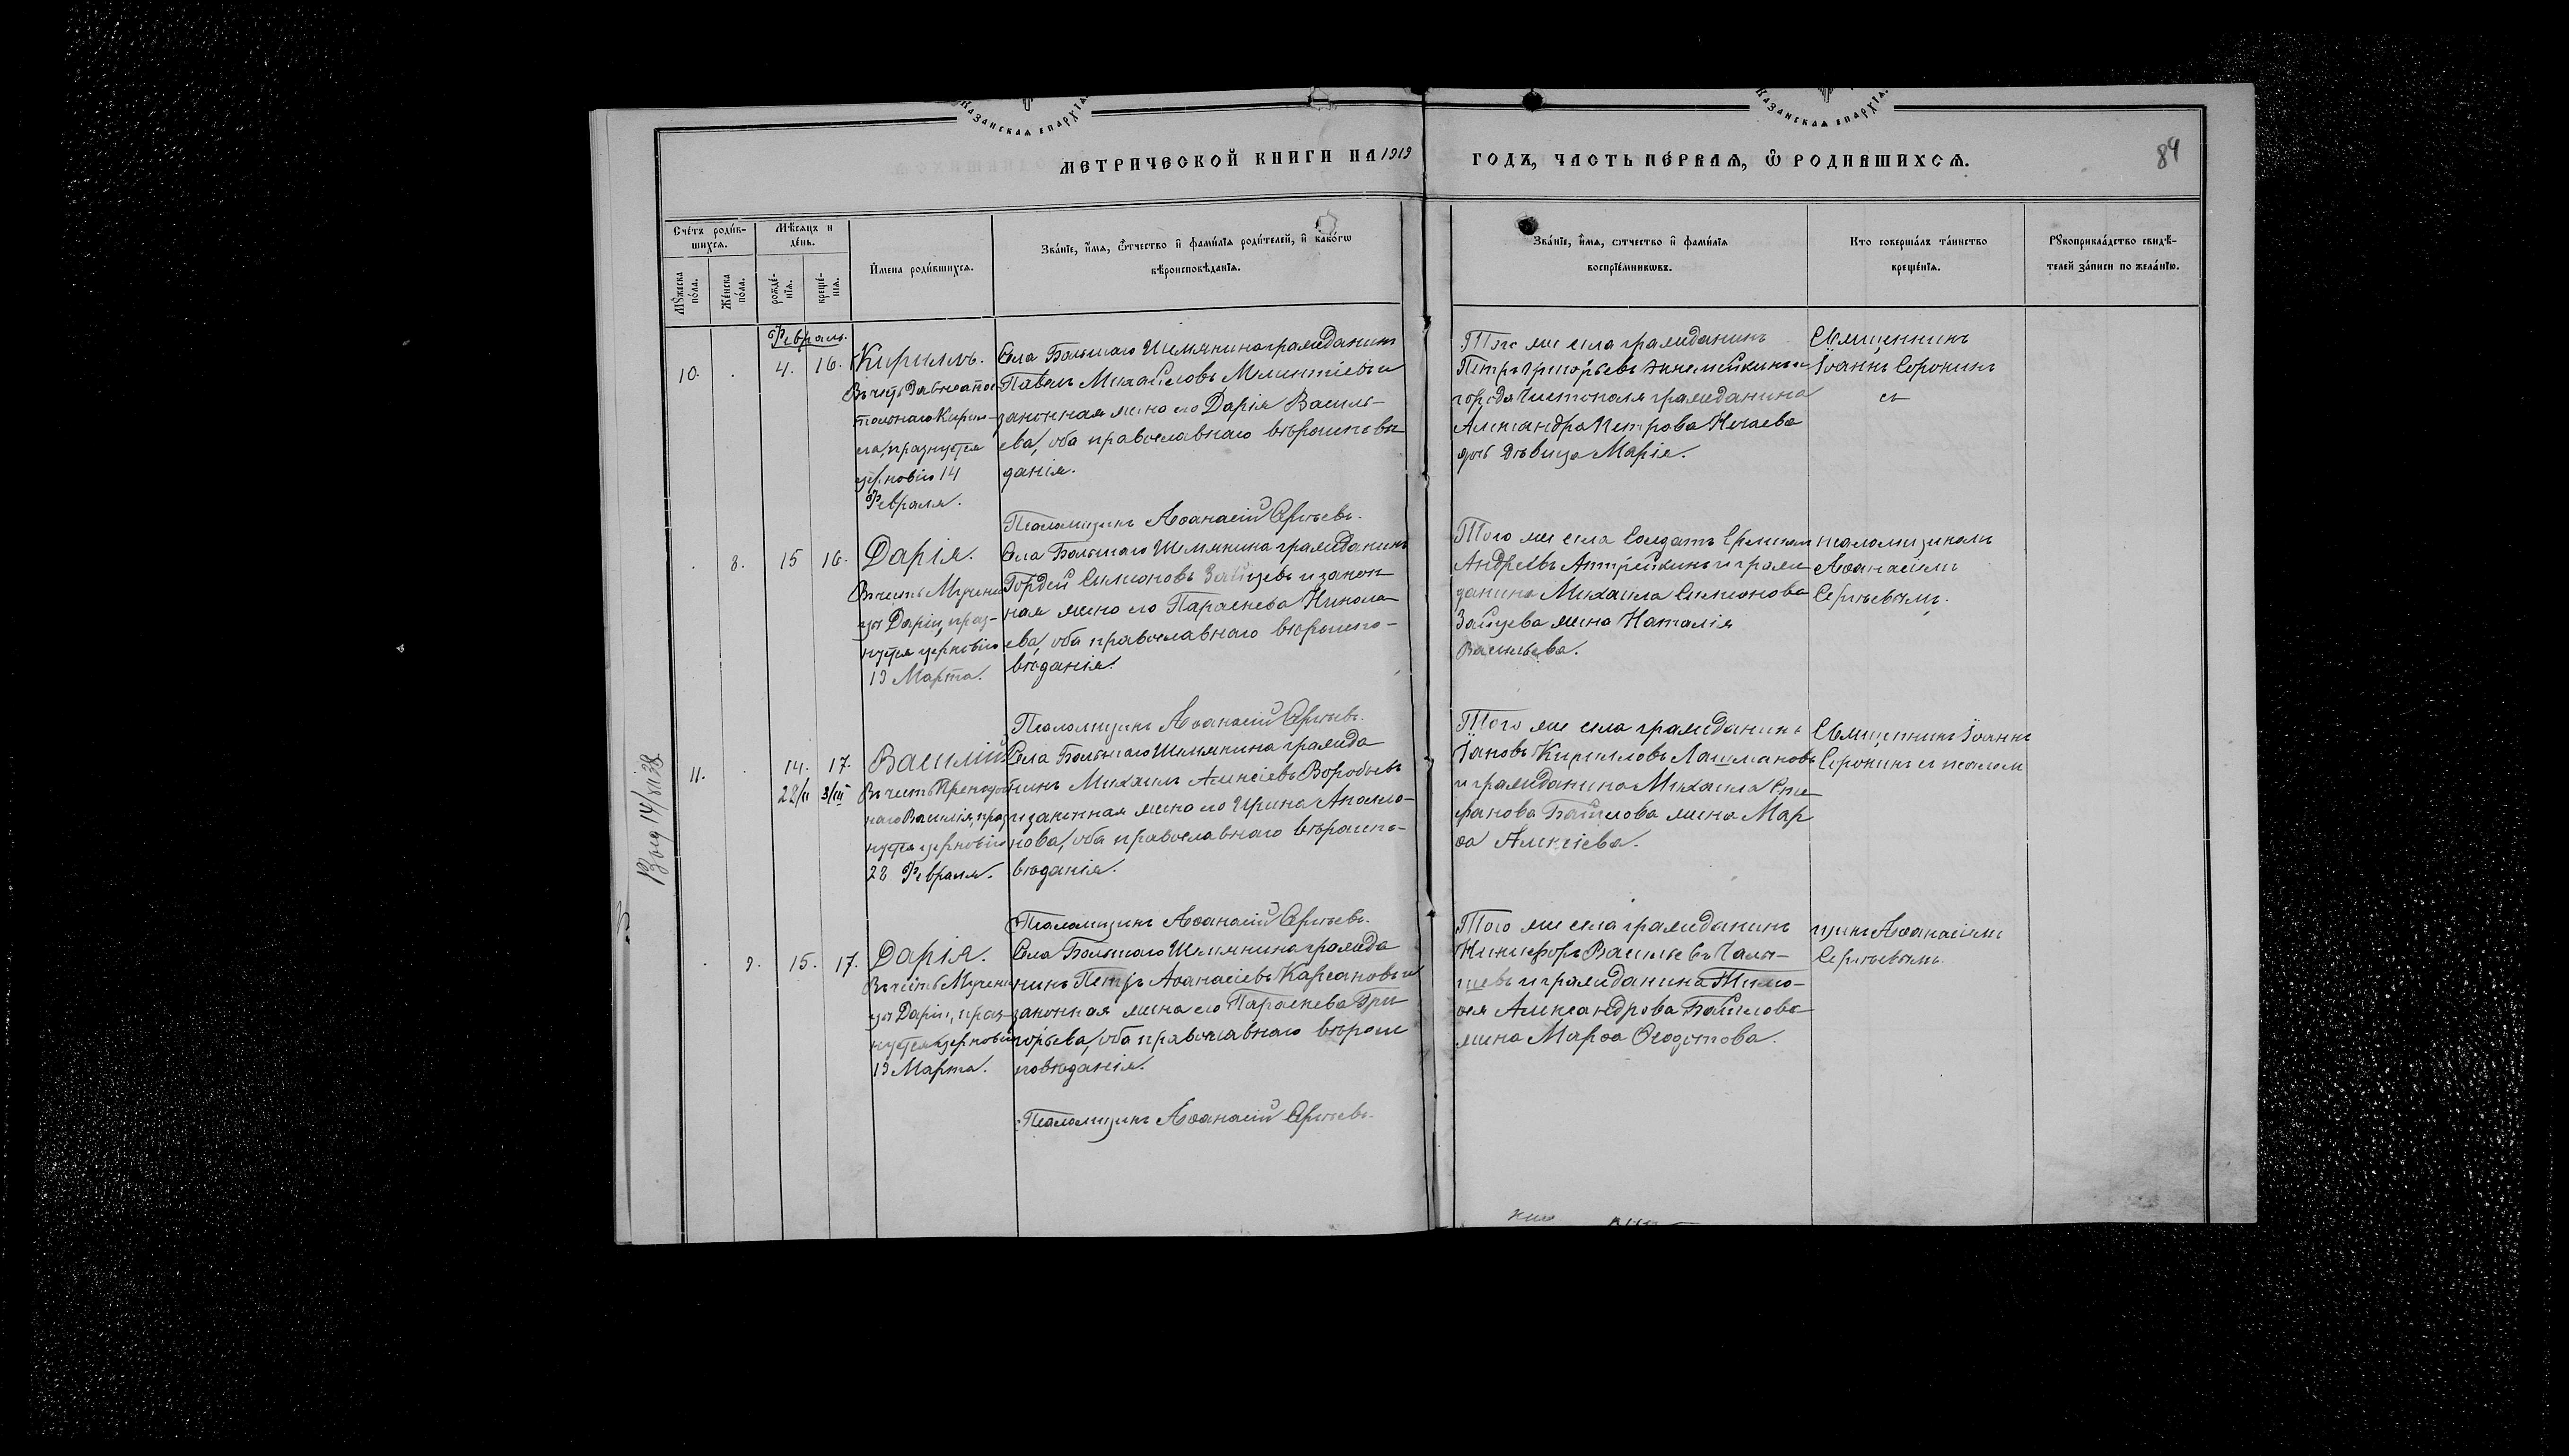 КАЗАНСКАЯ ЕПАРХІЯ.
КАЗАНСКАЯ ЕПАРХІЯ.
МЕТРИЧЕСКОЙ КНИГИ НА 1919
ГОДЪ, ЧАСТЬ ПЕ́РВАЯ, Ѿ РОДИВШИХСЯ.
89
Сче́тъ роди́в-
шихся.
Мѣ́сяцъ и
де́нь.
Мꙋ́жеска
по́ла.
Же́нска
по́ла.
рожде́-
нїя.
креще́-
нїя.
И҆мена роди́вшихся.
Зва́нїе, и҆́мя, ѻ҆́тчество и҆ фами́лїя роди́телей, и҆ како́гѡ
вѣроисповѣ́данїя.
Зва́нїе, и҆́мя, ѻтчество и҆ фами́лїя
воспрїе́мникѡвъ.
Кто соверша́лъ та́инство
креще́нїя.
Рꙋкоприкла́дство свидѣ́-
телей за́писи по жела́нїю.
Февраль.
10. . 4. 16. Кириллъ.
Въ честь Равноапос-
тольнаго Кирил-
ла, празнуется
церковію 14
Февраля.
Села Большаго Шемякина гражданинъ
Павелъ Михайловъ и
законная жена его Дарія Василь-
ева, оба православнаго вѣроисповѣ
данія.
Псаломщикъ Аѳанасій Сергѣевъ.
Того же села гражданинъ
Петръ Григорьевъ и
города Чистополя гражданина
Александра Петрова Нечаева
дочь дѣвица Марія.
Священникъ
Іоаннъ Сорокинъ
съ
. 8. 15 16. Дарія.
Въ честь Мучени
цы Даріи, праз-
нуется церковію
19 Марта.
Села Большаго Шемякина гражданинъ
Гордей Симоновъ Зайцевъ и закон
ная жена его Параскева Никола-
ева, оба православнаго вѣроиспо-
вѣданія.
Псаломщикъ Аѳанасій Сергѣевъ.
Того же села Солдатъ
Андреевъ и граж
данина Михаила Симонова
Зайцева жена Наталія
Васильева.
псаломщикомъ
Аѳанасіемъ
Сергѣевымъ.
Взод 14/VII 38
11. . 14. 17. Василій.
28/II 3/III Въ честь Преподоб
наго Василія, праз
нуется церковію
28 Февраля.
Села Большаго Шемякина гражда
нинъ Михаилъ Алексіевъ Воробьевъ
и законная жена его Ирина Аполло-
нова, оба православнаго вѣроиспо-
вѣданія.
Псаломщикъ Аѳанасій Сергѣевъ.
Того же села гражданинъ
Іаковъ Кирилловъ Лашмановъ
и гражданина Михаила Сте
фанова жена Мар
ѳа Алексіева.
Священникъ Іоаннъ
Сорокинъ съ псалом
. 9. 15. 17. Дарія.
Въ честь Мучени
цы Даріи, праз-
нуется церковію
19 Марта.
Села Большаго Шемякина гражда
нинъ Петръ Аѳанасіевъ Карсановъ и
законная жена его Параскева Гри
горьева, оба православнаго вѣроис
повѣданія.
Псаломщикъ Аѳанасій Сергѣевъ.
Того же села гражданинъ
Никифоръ Васильевъ
и гражданина Тимо-
ѳея Александрова
жена Марѳа Ѳедотова.
щикомъ Аѳанасіемъ
Сергѣевымъ.